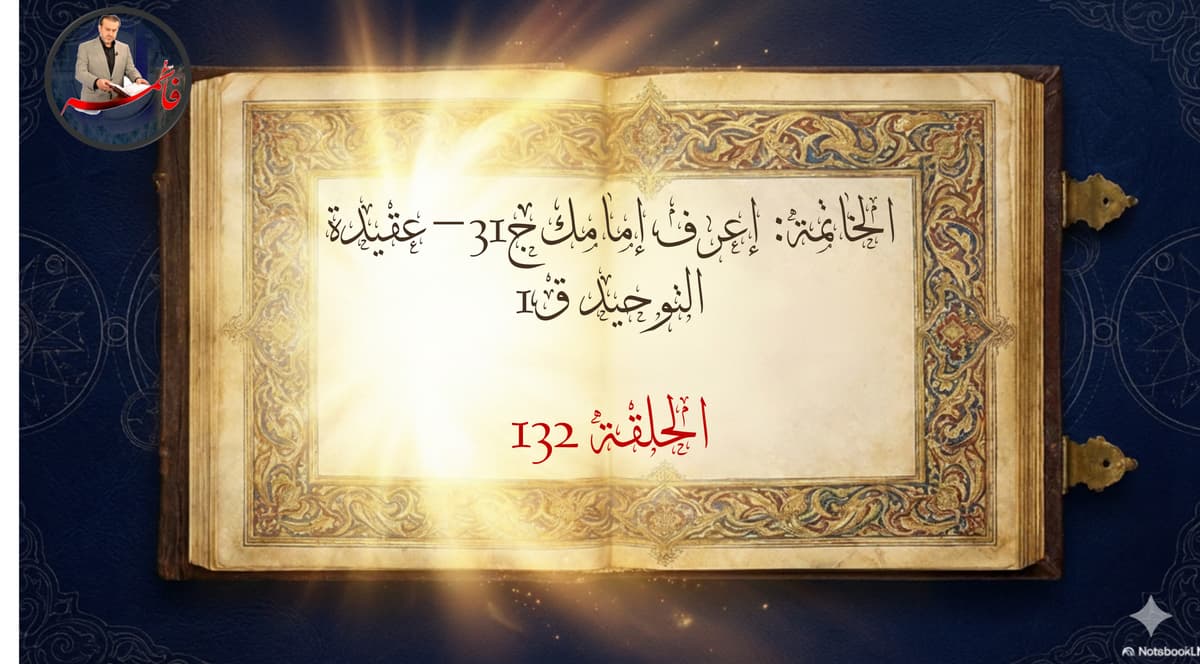 فاطمة
الخاتمة: إعرف إمامك ج31 – عقيدة
التوحيد ق1
الحلقة 132
NotsbookLM